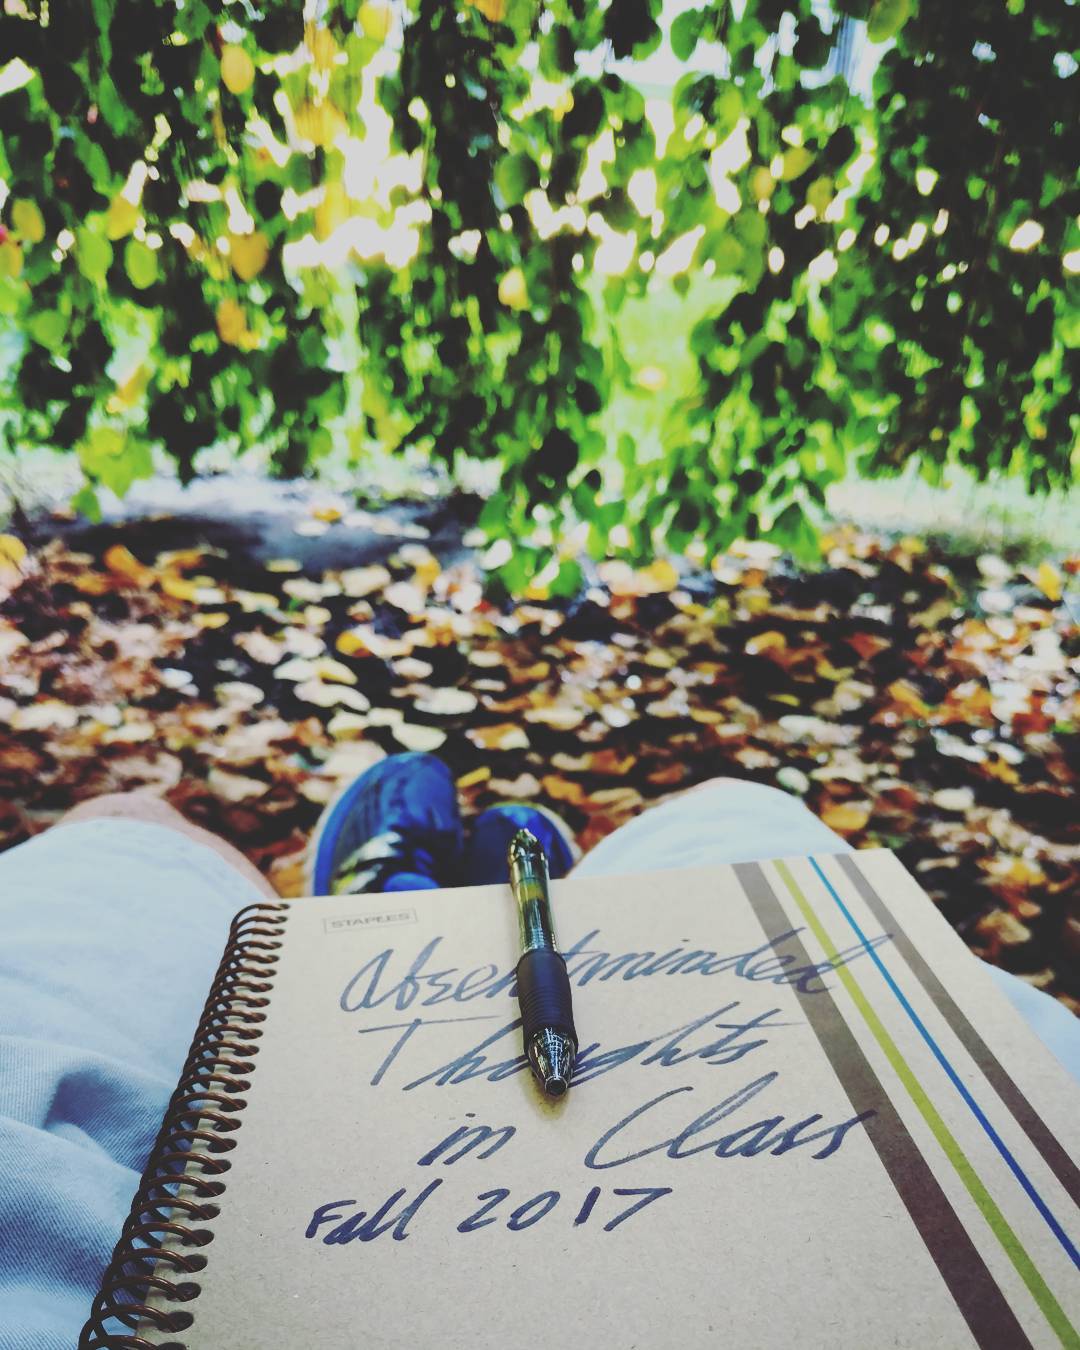 STAPLES
Absentminded
Thoughts
in Class
Fall 2017